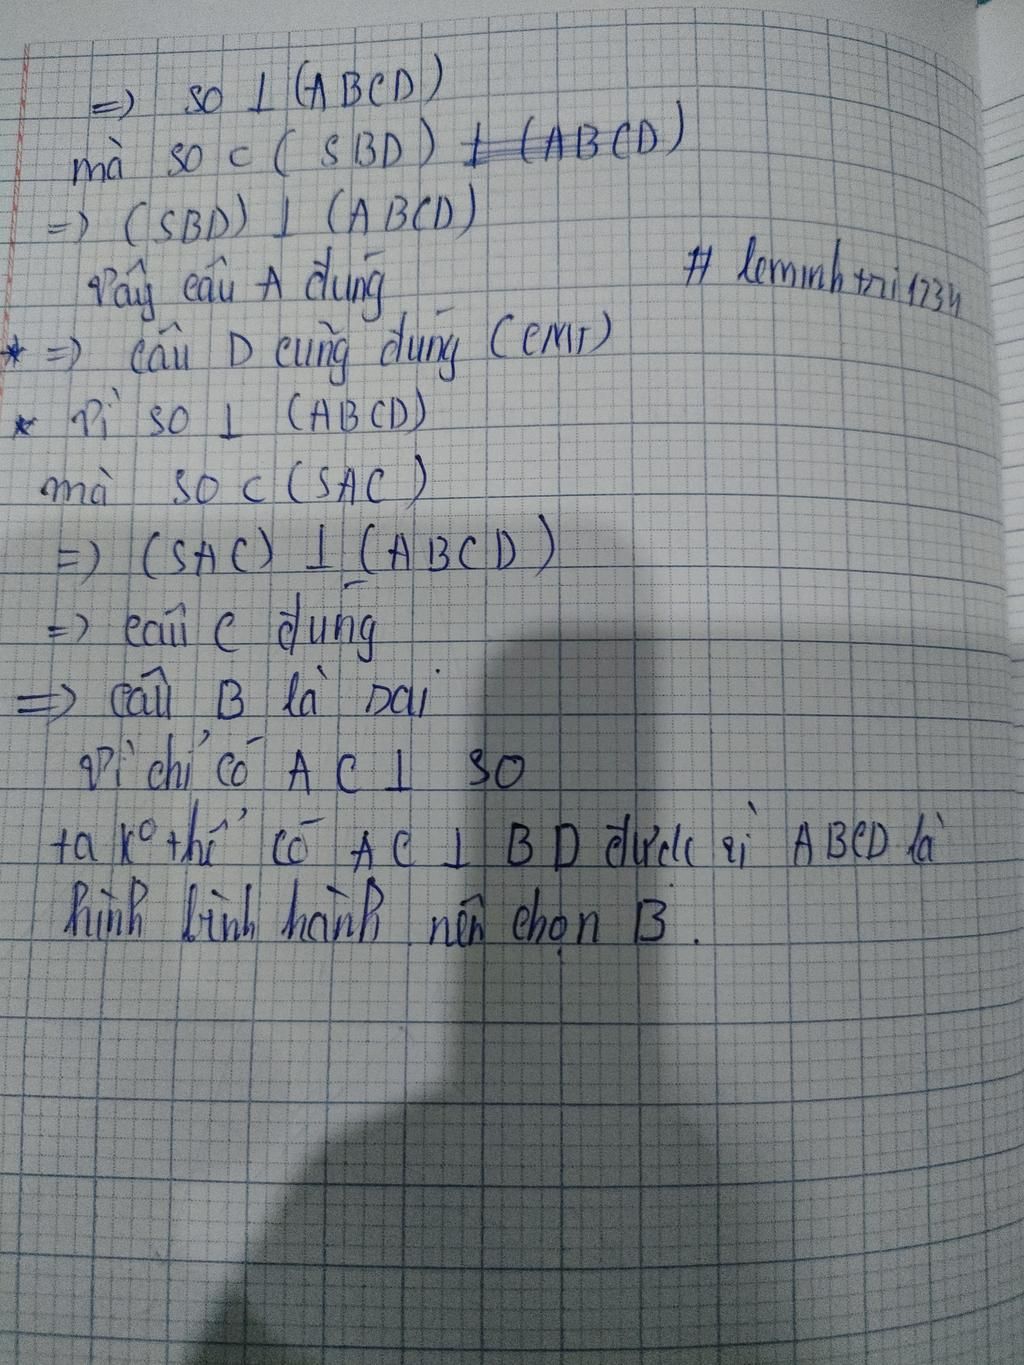 => SO ⊥ (ABCD)
mà SO ⊂ (SBD) ⊥ (ABCD)
=> (SBD) ⊥ (ABCD)
Vậy câu A đúng
# leminhtri1234
* => câu D cũng đúng (cmt)
* Vì SO ⊥ (ABCD)
mà SO ⊂ (SAC)
=> (SAC) ⊥ (ABCD)
=> câu C đúng
=> câu B là sai
Vì chỉ có AC ⊥ SO
ta k° thể có AC ⊥ BD được vì ABCD là
hình bình hành nên chọn B.